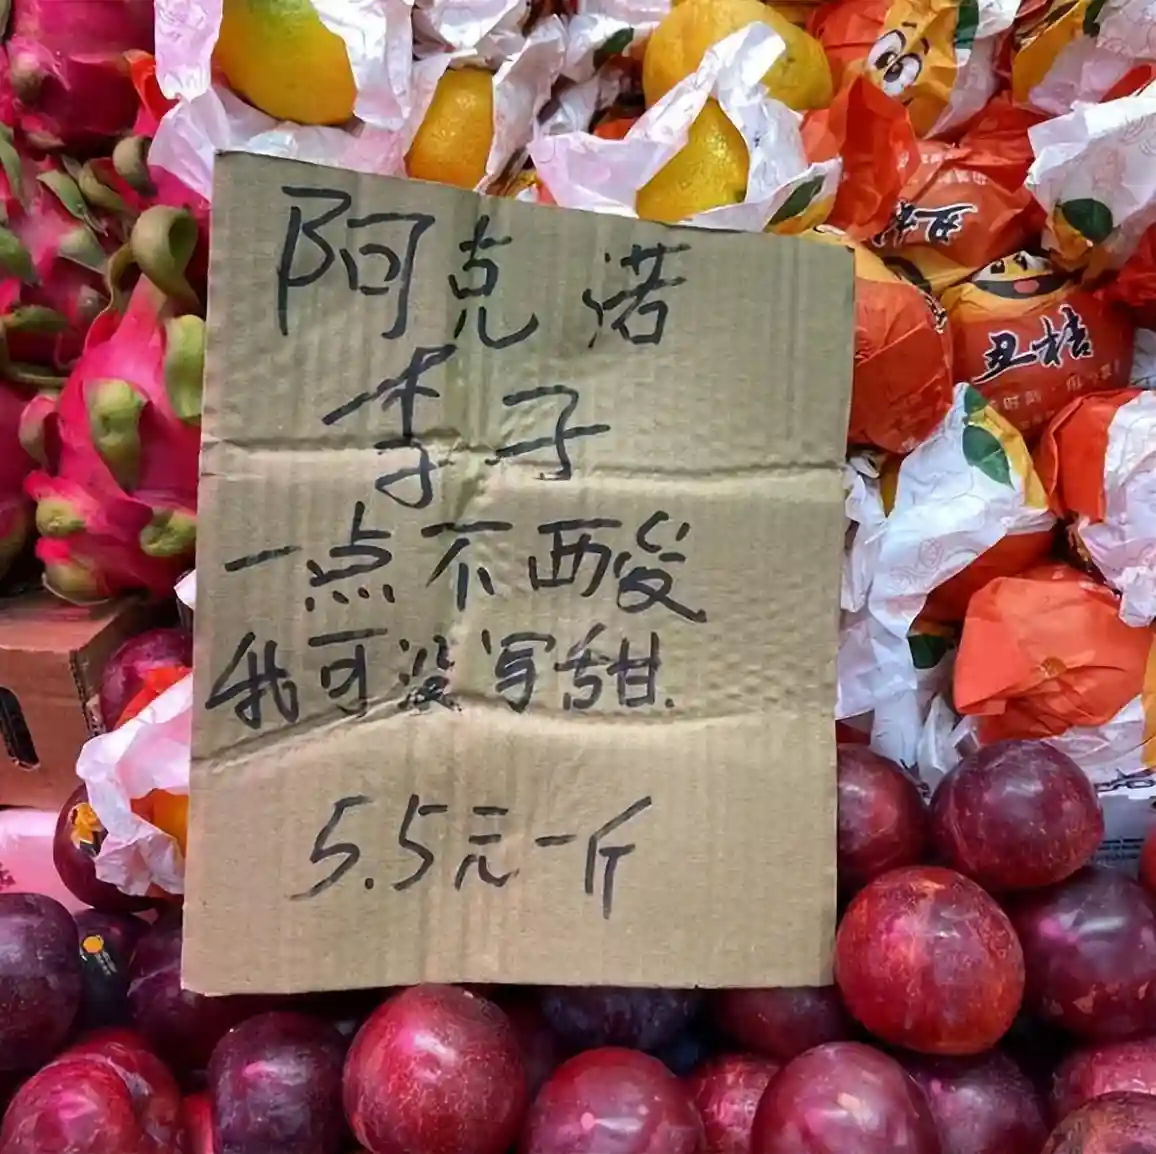 阿克诺
李子
一点不酸
我可没写甜.
5.5元一斤
丑桔
丑桔